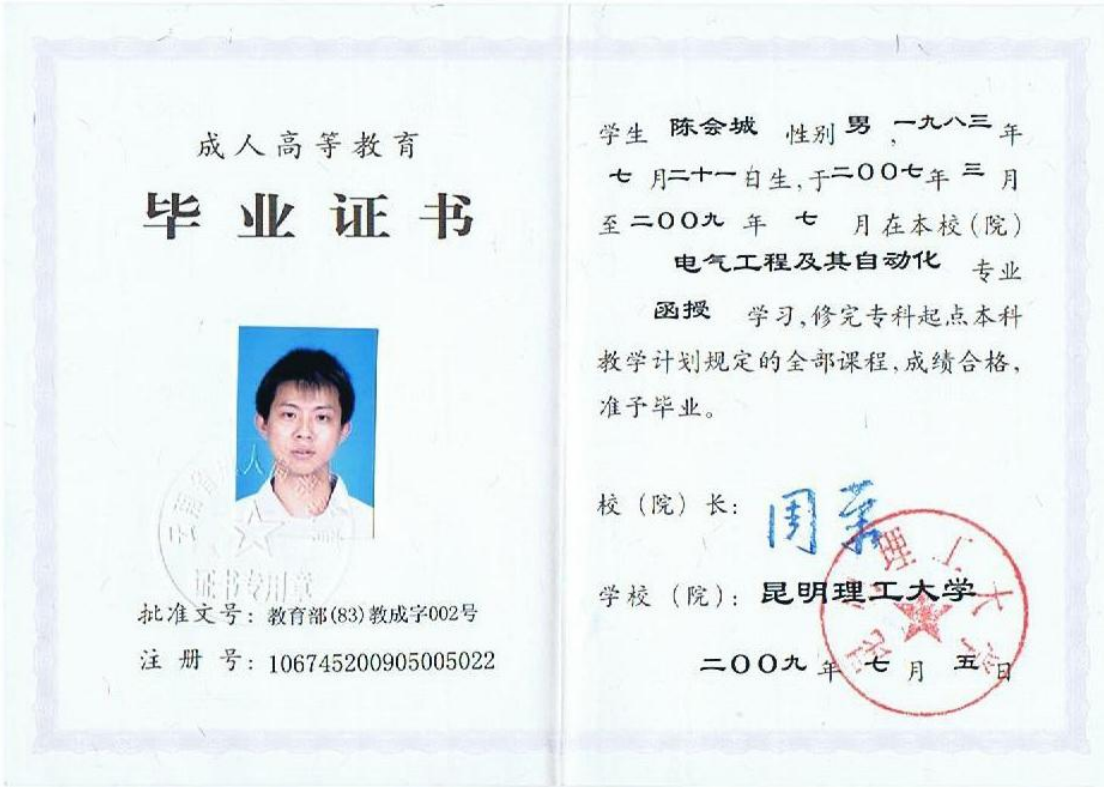 成人高等教育
毕业证书
云南省成人高等教育
证书专用章
批准文号：教育部(83)教成字002号
注 册 号：106745200905005022
学生 陈会城 性别 男，一九八三年
七月二十一日生，于二〇〇七年三月
至二〇〇九年七月在本校（院）
电气工程及其自动化 专业
函授 学习，修完专科起点本科
教学计划规定的全部课程，成绩合格，
准予毕业。
校（院）长：周荣
学校（院）：昆明理工大学
昆明理工大学
二〇〇九年七月五日